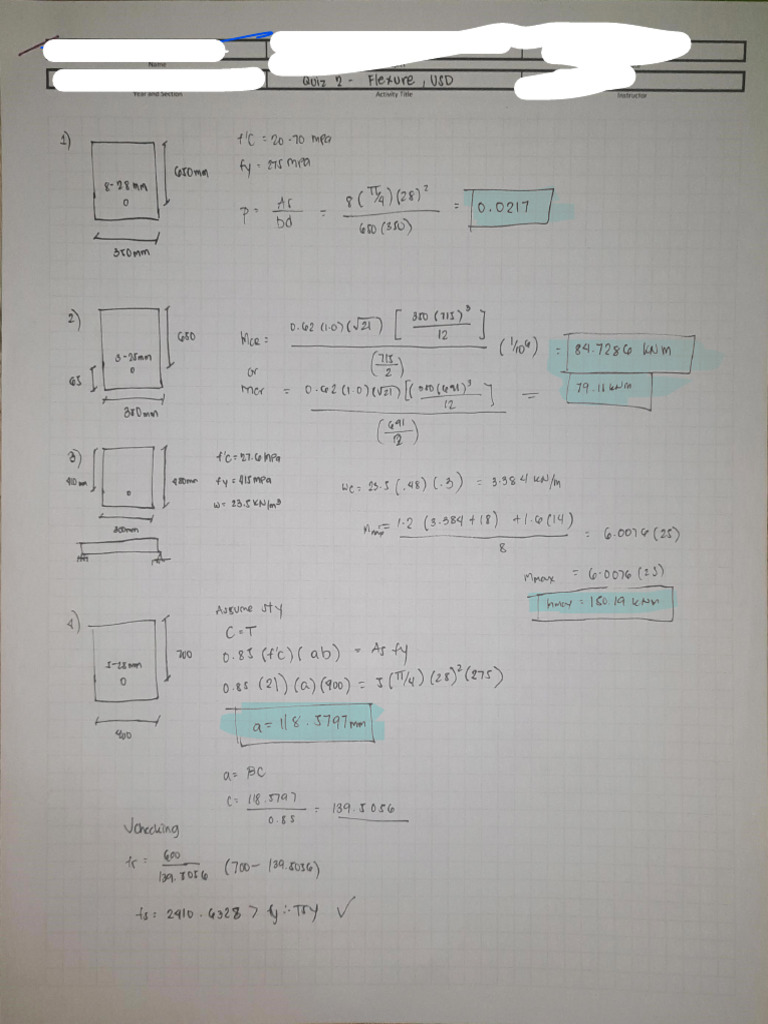 Name
QUIZ 2 - Flexure, USD
Year and Section
Activity Title
Instructor
1)
8-28mm
650mm
350mm
f'c = 20.70 mpa
fy = 275 mpa
ρ = As/bd = 8(π/4)(28)²/650(350) = 0.0217
2)
650
65
350mm
Mcr = 0.62(1.0)(√21)[350(715)³/12]/(715/2) (1/10⁶) = 84.7286 kNm
or
Mcr = 0.62(1.0)(√21)[(350(691)³/12]/(691/2) = 79.11 kNm
3)
410 mm
480mm
300mm
f'c = 27.6 mpa
fy = 415 mpa
w = 23.5 kN/m³
wc = 23.5(.48)(.3) = 3.384 kN/m
1.2(3.384+18)+1.6(14)/8 = 6.0076(25)
Mmax = 6.0076(25)
Mmax = 150.19 kNm
4)
5-28mm
700
400
Assume sty
C=T
0.85(f'c)(ab) = As fy
0.85(21)(a)(400) = 5(π/4)(28)²(275)
a = 118.5797mm
a = βC
c = 118.5797/0.85 = 139.5056
√checking
fs = 600/139.5056 (700-139.5056)
fs = 2410.6328 > fy ∴ TSY ✓